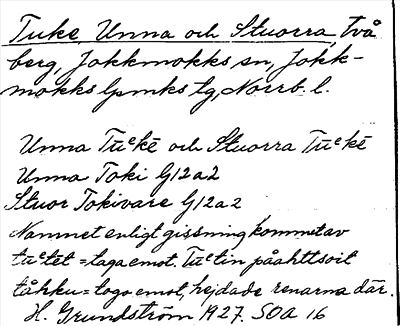 Tuke, Unna och Stuorra, två
berg, Jokkmokks sn, Jokk-
mokks lpmks tg, Norrb. l.
Unna Tūᶜkē och Stuorra Tūᶜkē
Unna Toki G12a2
Stuor Tokivare G12a2
Namnet enligt gissning kommet av
tūᶜtet = taga emot. Tūᶜtin påahttsoit
tåhku = togo emot, hejdade renarna där.
H. Grundström 1927. SOA 16